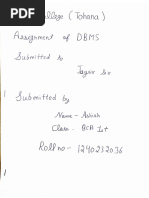 College (Tohana)
Assignment of DBMS
Submitted to
Jagsir Sir
Submitted by
Name - Ashish
Class - BCA Ist
Roll no - 1240232036